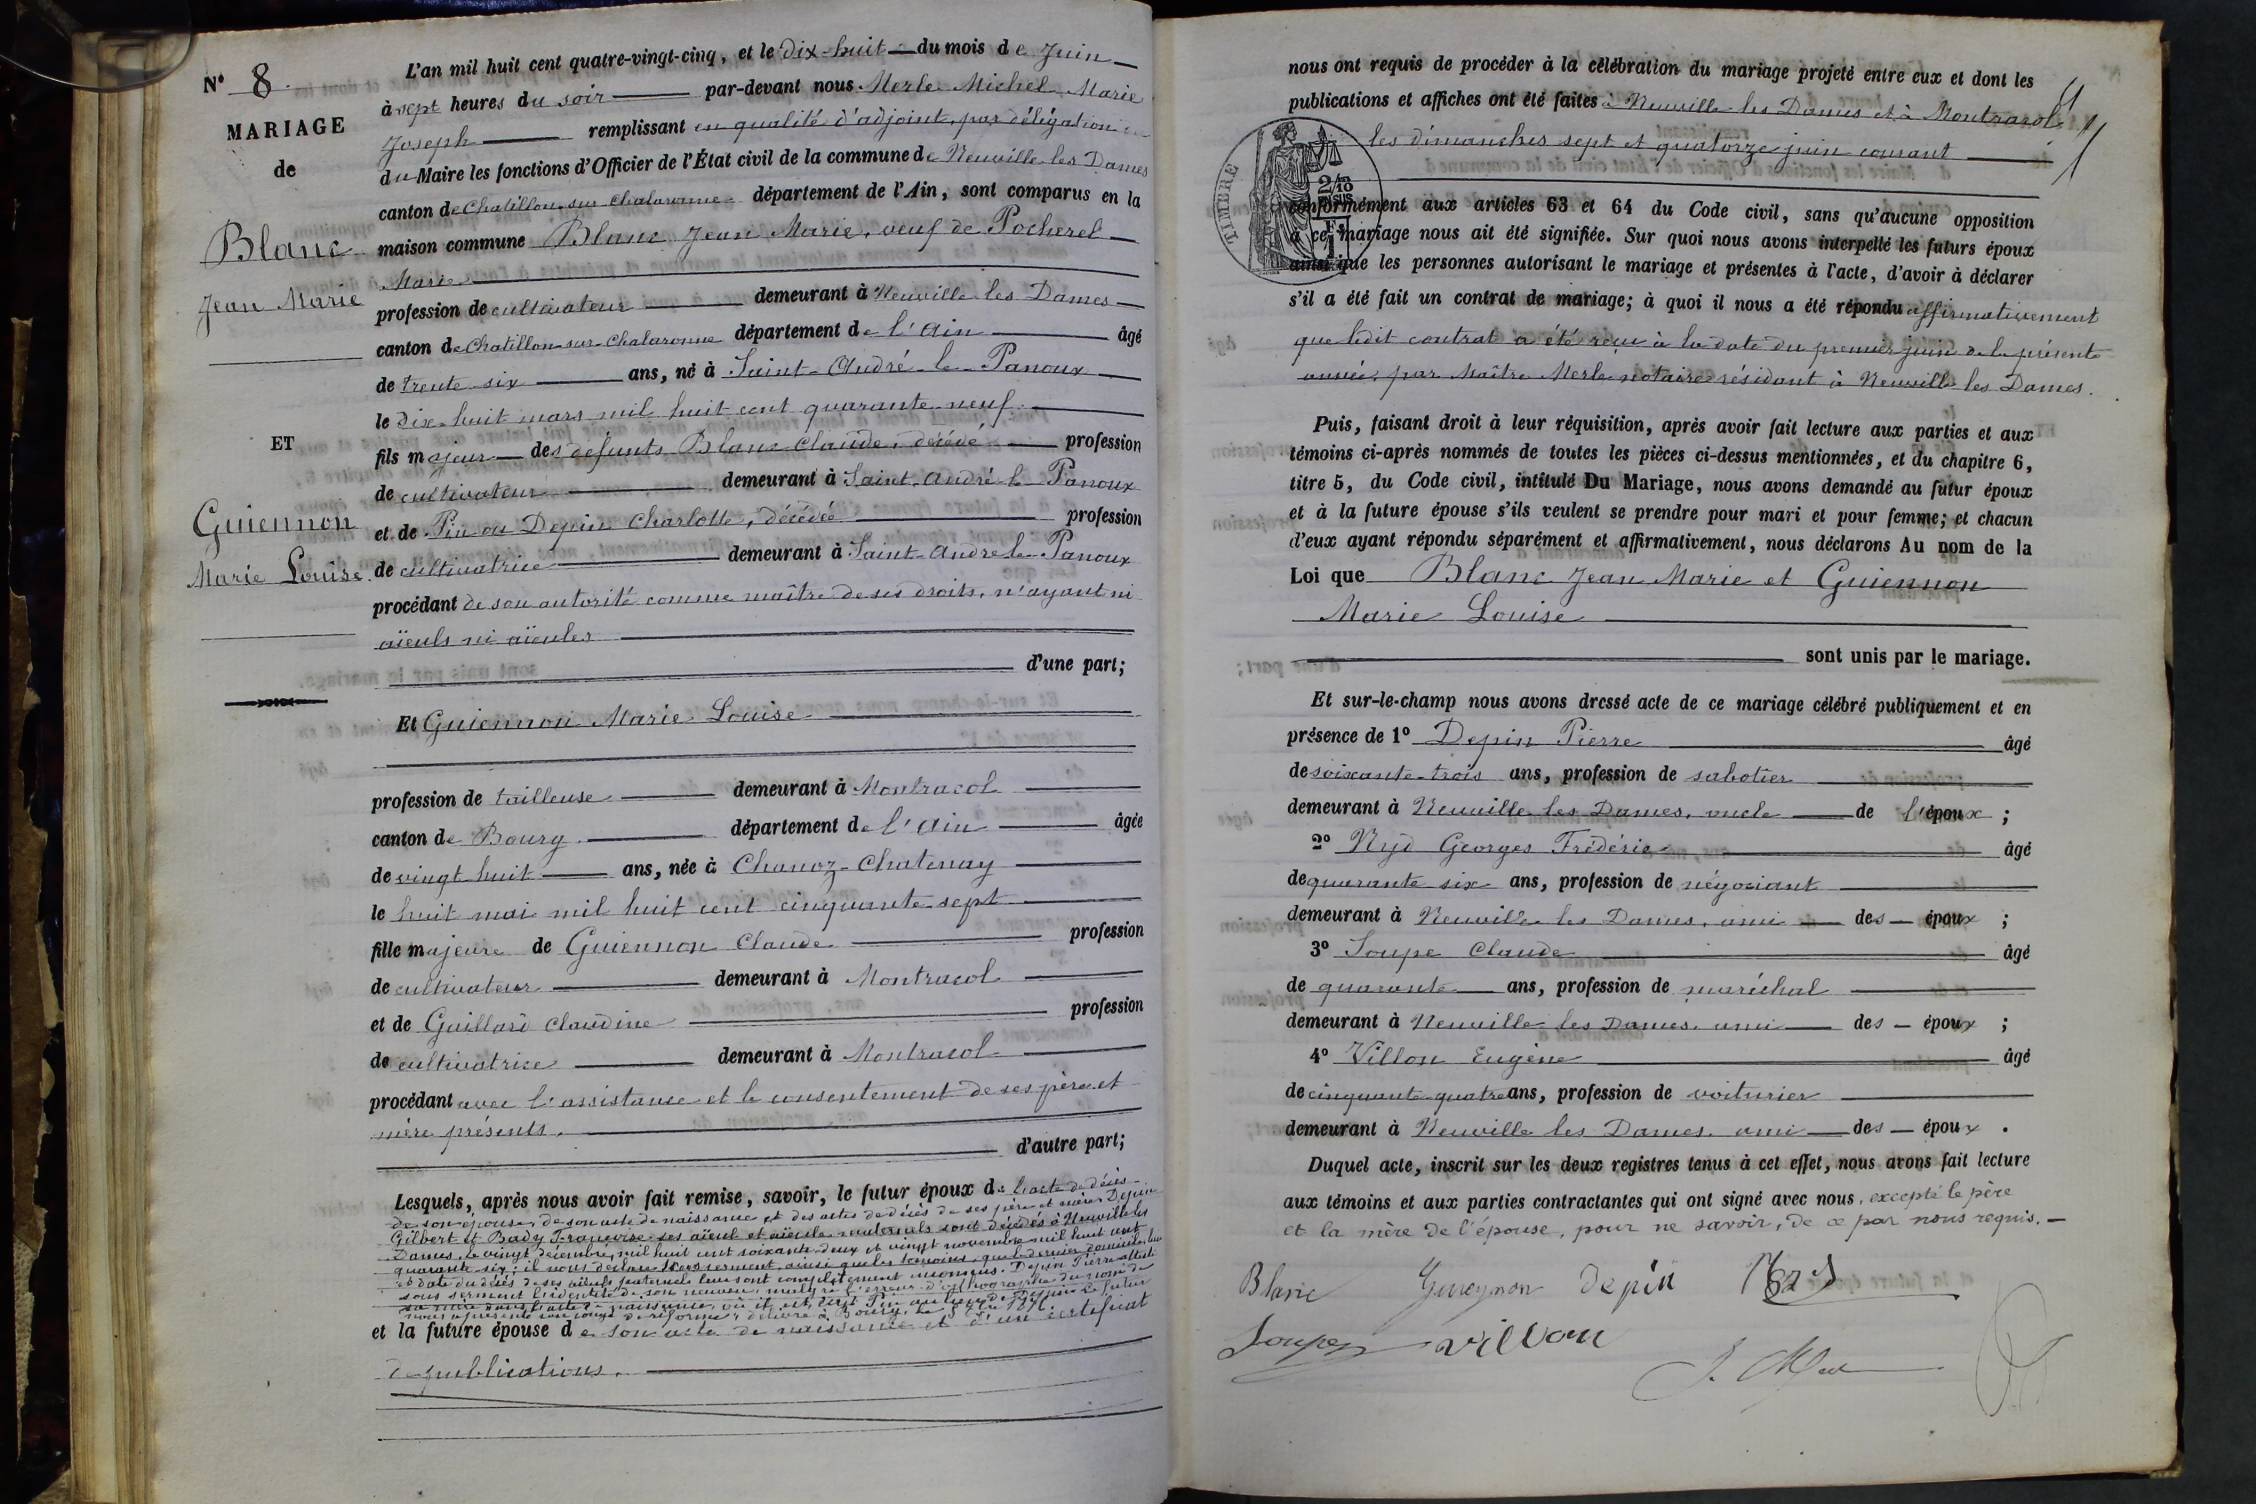 N° 8
MARIAGE
de
Blanc
Jean Marie
ET
Guiennon
Marie Louise
L'an mil huit cent quatre-vingt-cinq, et le dix-huit du mois de Juin
à sept heures du soir par-devant nous Merle Michel Marie
Joseph remplissant en qualité d'adjoint, par délégation
du Maire les fonctions d'Officier de l'État civil de la commune de Neuville les Dames
canton de Chatillon-sur-Chalaronne département de l'Ain, sont comparus en la
maison commune Blanc Jean Marie, veuf de Pocherel
Marie
profession de cultivateur demeurant à Neuville les Dames
canton de Chatillon-sur-Chalaronne département de l'Ain âgé
de trente six ans, né à Saint-André-le-Panoux
le dix-huit mars mil huit cent quarante-neuf
fils majeur des défunts Blanc Claude, décédé profession
de cultivateur demeurant à Saint-André-le-Panoux
et de Pin ou Depin Charlotte, décédée profession
de cultivatrice demeurant à Saint-André-le-Panoux
procédant de son autorité comme maître de ses droits, n'ayant ni
aïeuls ni aïeules
d'une part;
Et Guiennon Marie Louise
profession de tailleuse demeurant à Montracol
canton de Bourg département de l'Ain âgée
de vingt huit ans, née à Chanoz-Chatenay
le huit mai mil huit cent cinquante-sept
fille majeure de Guiennon Claude profession
de cultivateur demeurant à Montracol
et de Guillard Claudine profession
de cultivatrice demeurant à Montracol
procédant avec l'assistance et le consentement de ses père et
mère présents.
d'autre part;
Lesquels, après nous avoir fait remise, savoir, le futur époux de l'acte de décès
de son épouse, de son acte de naissance et des actes de décès de ses père et mère. Depin
Gilbert et Bady Françoise ses aïeul et aïeule maternels sont décédés à Neuville les
Dames, le vingt décembre mil huit cent soixante-deux et vingt novembre mil huit cent
quarante-six; il nous déclare sous serment, ainsi que les témoins, que le dernier domicile
et date du décès de ses aïeuls paternels leur sont complètement inconnus. Depin Pierre atteste
sous serment l'identité de son neveu, malgré l'erreur d'orthographe du nom de
sa mère dans l'acte de naissance, où il est écrit Pin au lieu de Depin. Le futur
nous a présenté son congé de réforme, délivré à Bourg, le
et la future épouse de son acte de naissance et d'un certificat
de publications.
nous ont requis de procéder à la célébration du mariage projeté entre eux et dont les
publications et affiches ont été faites à Neuville les Dames et à Montracol
les dimanches sept et quatorze juin courant
TIMBRE
2/10
EN SUS
conformément aux articles 63 et 64 du Code civil, sans qu'aucune opposition
à ce mariage nous ait été signifiée. Sur quoi nous avons interpellé les futurs époux
ainsi que les personnes autorisant le mariage et présentes à l'acte, d'avoir à déclarer
s'il a été fait un contrat de mariage; à quoi il nous a été répondu affirmativement
que ledit contrat a été reçu à la date du premier juin de la présente
année, par Maître Merle notaire résidant à Neuville les Dames.
Puis, faisant droit à leur réquisition, après avoir fait lecture aux parties et aux
témoins ci-après nommés de toutes les pièces ci-dessus mentionnées, et du chapitre 6,
titre 5, du Code civil, intitulé Du Mariage, nous avons demandé au futur époux
et à la future épouse s'ils veulent se prendre pour mari et pour femme; et chacun
d'eux ayant répondu séparément et affirmativement, nous déclarons Au nom de la
Loi que Blanc Jean Marie et Guiennon
Marie Louise
sont unis par le mariage.
Et sur-le-champ nous avons dressé acte de ce mariage célébré publiquement et en
présence de 1° Depin Pierre âgé
de soixante-trois ans, profession de sabotier
demeurant à Neuville les Dames, oncle de l'époux ;
2° Nyd Georges Frédéric âgé
de quarante six ans, profession de négociant
demeurant à Neuville les Dames, ami des époux ;
3° Soupe Claude âgé
de quarante ans, profession de maréchal
demeurant à Neuville les Dames, ami des époux ;
4° Villon Eugène âgé
de cinquante-quatre ans, profession de voiturier
demeurant à Neuville les Dames, ami des époux .
Duquel acte, inscrit sur les deux registres tenus à cet effet, nous avons fait lecture
aux témoins et aux parties contractantes qui ont signé avec nous, excepté le père
et la mère de l'épouse, pour ne savoir, de ce par nous requis.
Blanc Gueynon depin
Soupe villon